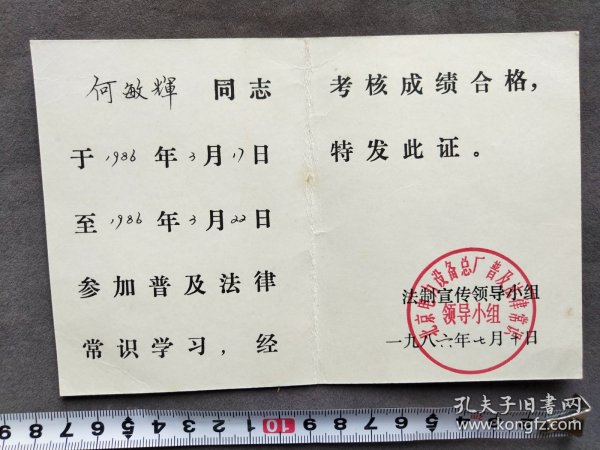 何敏輝 同志
于1986年3月17日
至1986年3月22日
参加普及法律
常识学习，经
考核成绩合格，
特发此证。
法制宣传领导小组
一九八六年七月 日
北京电力设备总厂普及法律常识
领导小组
6 7 8 9 10 1 2 3 4 5 6 7 8 9
孔夫子旧书网
www.kongfz.com